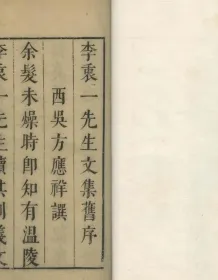 李衷一先生文集舊序
西吳方應祥譔
余髮未燥時卽知有溫陵
李衷一先生讀其制義文